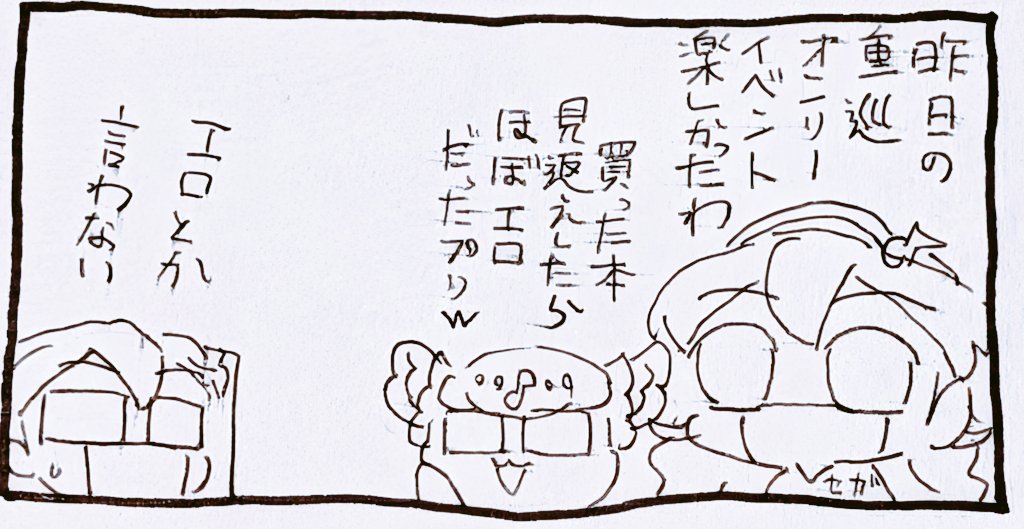 昨日の
重巡
オンリー
イベント
楽しかったわ
買った本
見返えしたら
ほぼエロ
だったプリw
エロとか
言わない
セガ